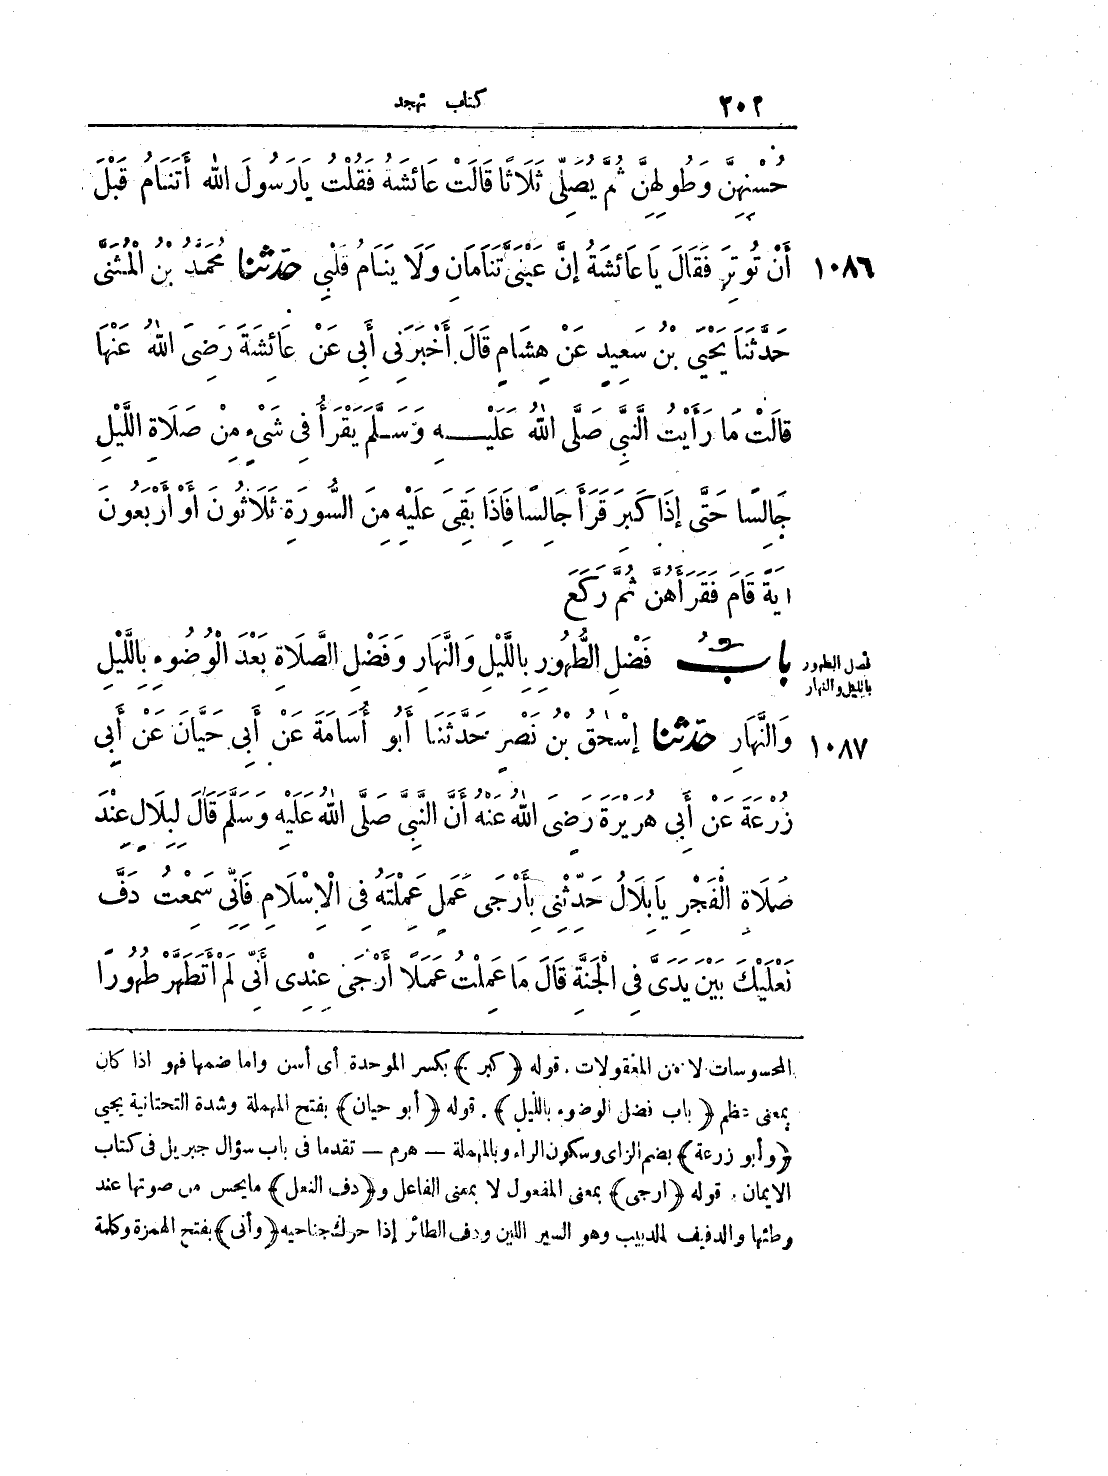 ٢٠٢ كتاب تهجد
حُسْنِهِنَّ وَطُولِهِنَّ ثُمَّ يُصَلِّى ثَلَاثًا قَالَتْ عَائِشَةُ فَقُلْتُ يَارَسُولَ اللهِ أَتَنَامُ قَبْلَ
١٠٨٦ أَنْ تُوتِرَ فَقَالَ يَا عَائِشَةُ إِنَّ عَيْنَىَّ تَنَامَانِ وَلَا يَنَامُ قَلْبِى حَدَّثَنَا مُحَمَّدُ بْنُ الْمُثَنَّى
حَدَّثَنَا يَحْيَى بْنُ سَعِيدٍ عَنْ هِشَامٍ قَالَ أَخْبَرَنِى أَبِى عَنْ عَائِشَةَ رَضِىَ اللهُ عَنْهَا
قَالَتْ مَا رَأَيْتُ النَّبِىَّ صَلَّى اللهُ عَلَيْهِ وَسَلَّمَ يَقْرَأُ فِى شَىْءٍ مِنْ صَلَاةِ اللَّيْلِ
جَالِسًا حَتَّى إِذَا كَبِرَ قَرَأَ جَالِسًا فَإِذَا بَقِىَ عَلَيْهِ مِنَ السُّورَةِ ثَلَاثُونَ أَوْ أَرْبَعُونَ
ايَةً قَامَ فَقَرَأَهُنَّ ثُمَّ رَكَعَ
بابُ فَضْلِ الطُّهُورِ بِاللَّيْلِ وَالنَّهَارِ وَفَضْلِ الصَّلَاةِ بَعْدَ الْوُضُوءِ بِاللَّيْلِ
فضل الطهور
بالليل والنهار
١٠٨٧ وَالنَّهَارِ حَدَّثَنَا إِسْحٰقُ بْنُ نَصْرٍ حَدَّثَنَا أَبُو أُسَامَةَ عَنْ أَبِى حَيَّانَ عَنْ أَبِى
زُرْعَةَ عَنْ أَبِى هُرَيْرَةَ رَضِىَ اللهُ عَنْهُ أَنَّ النَّبِىَّ صَلَّى اللهُ عَلَيْهِ وَسَلَّمَ قَالَ لِبِلَالٍ عِنْدَ
صَلَاةِ الْفَجْرِ يَابِلَالُ حَدِّثْنِى بِأَرْجَى عَمَلٍ عَمِلْتَهُ فِى الْإِسْلَامِ فَإِنِّى سَمِعْتُ دَفَّ
نَعْلَيْكَ بَيْنَ يَدَىَّ فِى الْجَنَّةِ قَالَ مَا عَمِلْتُ عَمَلًا أَرْجَى عِنْدِى أَنِّى لَمْ أَتَطَهَّرْ طُهُورًا
المحسوسات لا من المعقولات. قوله ﴿كبر﴾ بكسر الموحدة أى أسن واما ضمها فهو اذا كان
بمعنى عظم ﴿باب فضل الوضوء بالليل﴾. قوله ﴿أبو حيان﴾ بفتح المهملة وشدة التحتانية يحيى
﴿وأبو زرعة﴾ بضم الزاى وسكون الراء وبالمهملة – هرم – تقدما فى باب سؤال جبريل فى كتاب
الايمان. قوله ﴿ارجى﴾ بمعنى المفعول لا بمعنى الفاعل و﴿دف النعل﴾ مايحس من صوتها عند
وطئها والدفيف الدبيب وهو السير اللين ودف الطائر إذا حرك جناحيه ﴿وأنى﴾ بفتح الهمزة وكلمة